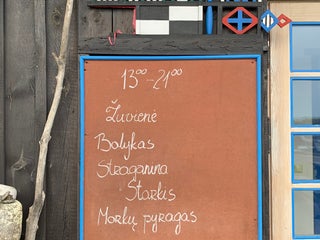 13⁰⁰-21⁰⁰
Žuvienė
Balykas
Straganina
Starkis
Morkų pyragas